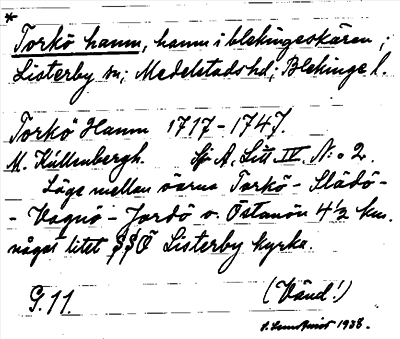 *
Torkö hamn, hamn i blekingeskären;
Listerby sn; Medelstads hd; Blekinge l.
Torkö Hamn 1717-1747.
M. Küllenbergh. Sj A, Litt IV, N:o 2.
Läge mellan öarna Torkö - Slädö-
- Vagnö - Jordö o. Östanön 4½ km.
något litet SSÖ Listerby kyrka.
G. 11. (Vänd!)
1938.